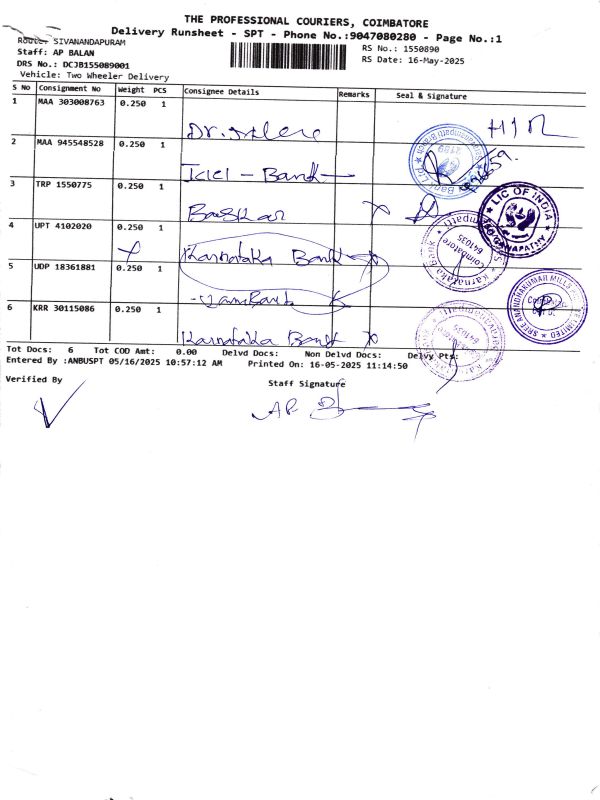 THE PROFESSIONAL COURIERS, COIMBATORE
Delivery Runsheet - SPT - Phone No.:9047080280 - Page No.:1
Route: SIVANANDAPURAM
Staff: AP BALAN
DRS No.: DCJB155089001
Vehicle: Two Wheeler Delivery
RS No.: 1550890
RS Date: 16-May-2025
S No Consignment No Weight PCS Consignee Details Remarks Seal & Signature
1 MAA 303008763 0.250 1
2 MAA 945548528 0.250 1
ICICI - Bank
3 TRP 1550775 0.250 1
Baskar
4 UPT 4102020 0.250 1
Karnataka Bank
5 UDP 18361881 0.250 1
6 KRR 30115086 0.250 1
Karnataka Bank
LIC OF INDIA
Karnataka Bank
Coimbatore
641035
Tot Docs: 6 Tot COD Amt: 0.00 Delvd Docs: Non Delvd Docs: Delvy Pts:
Entered By :ANBUSPT 05/16/2025 10:57:12 AM Printed On: 16-05-2025 11:14:50
Verified By
Staff Signature